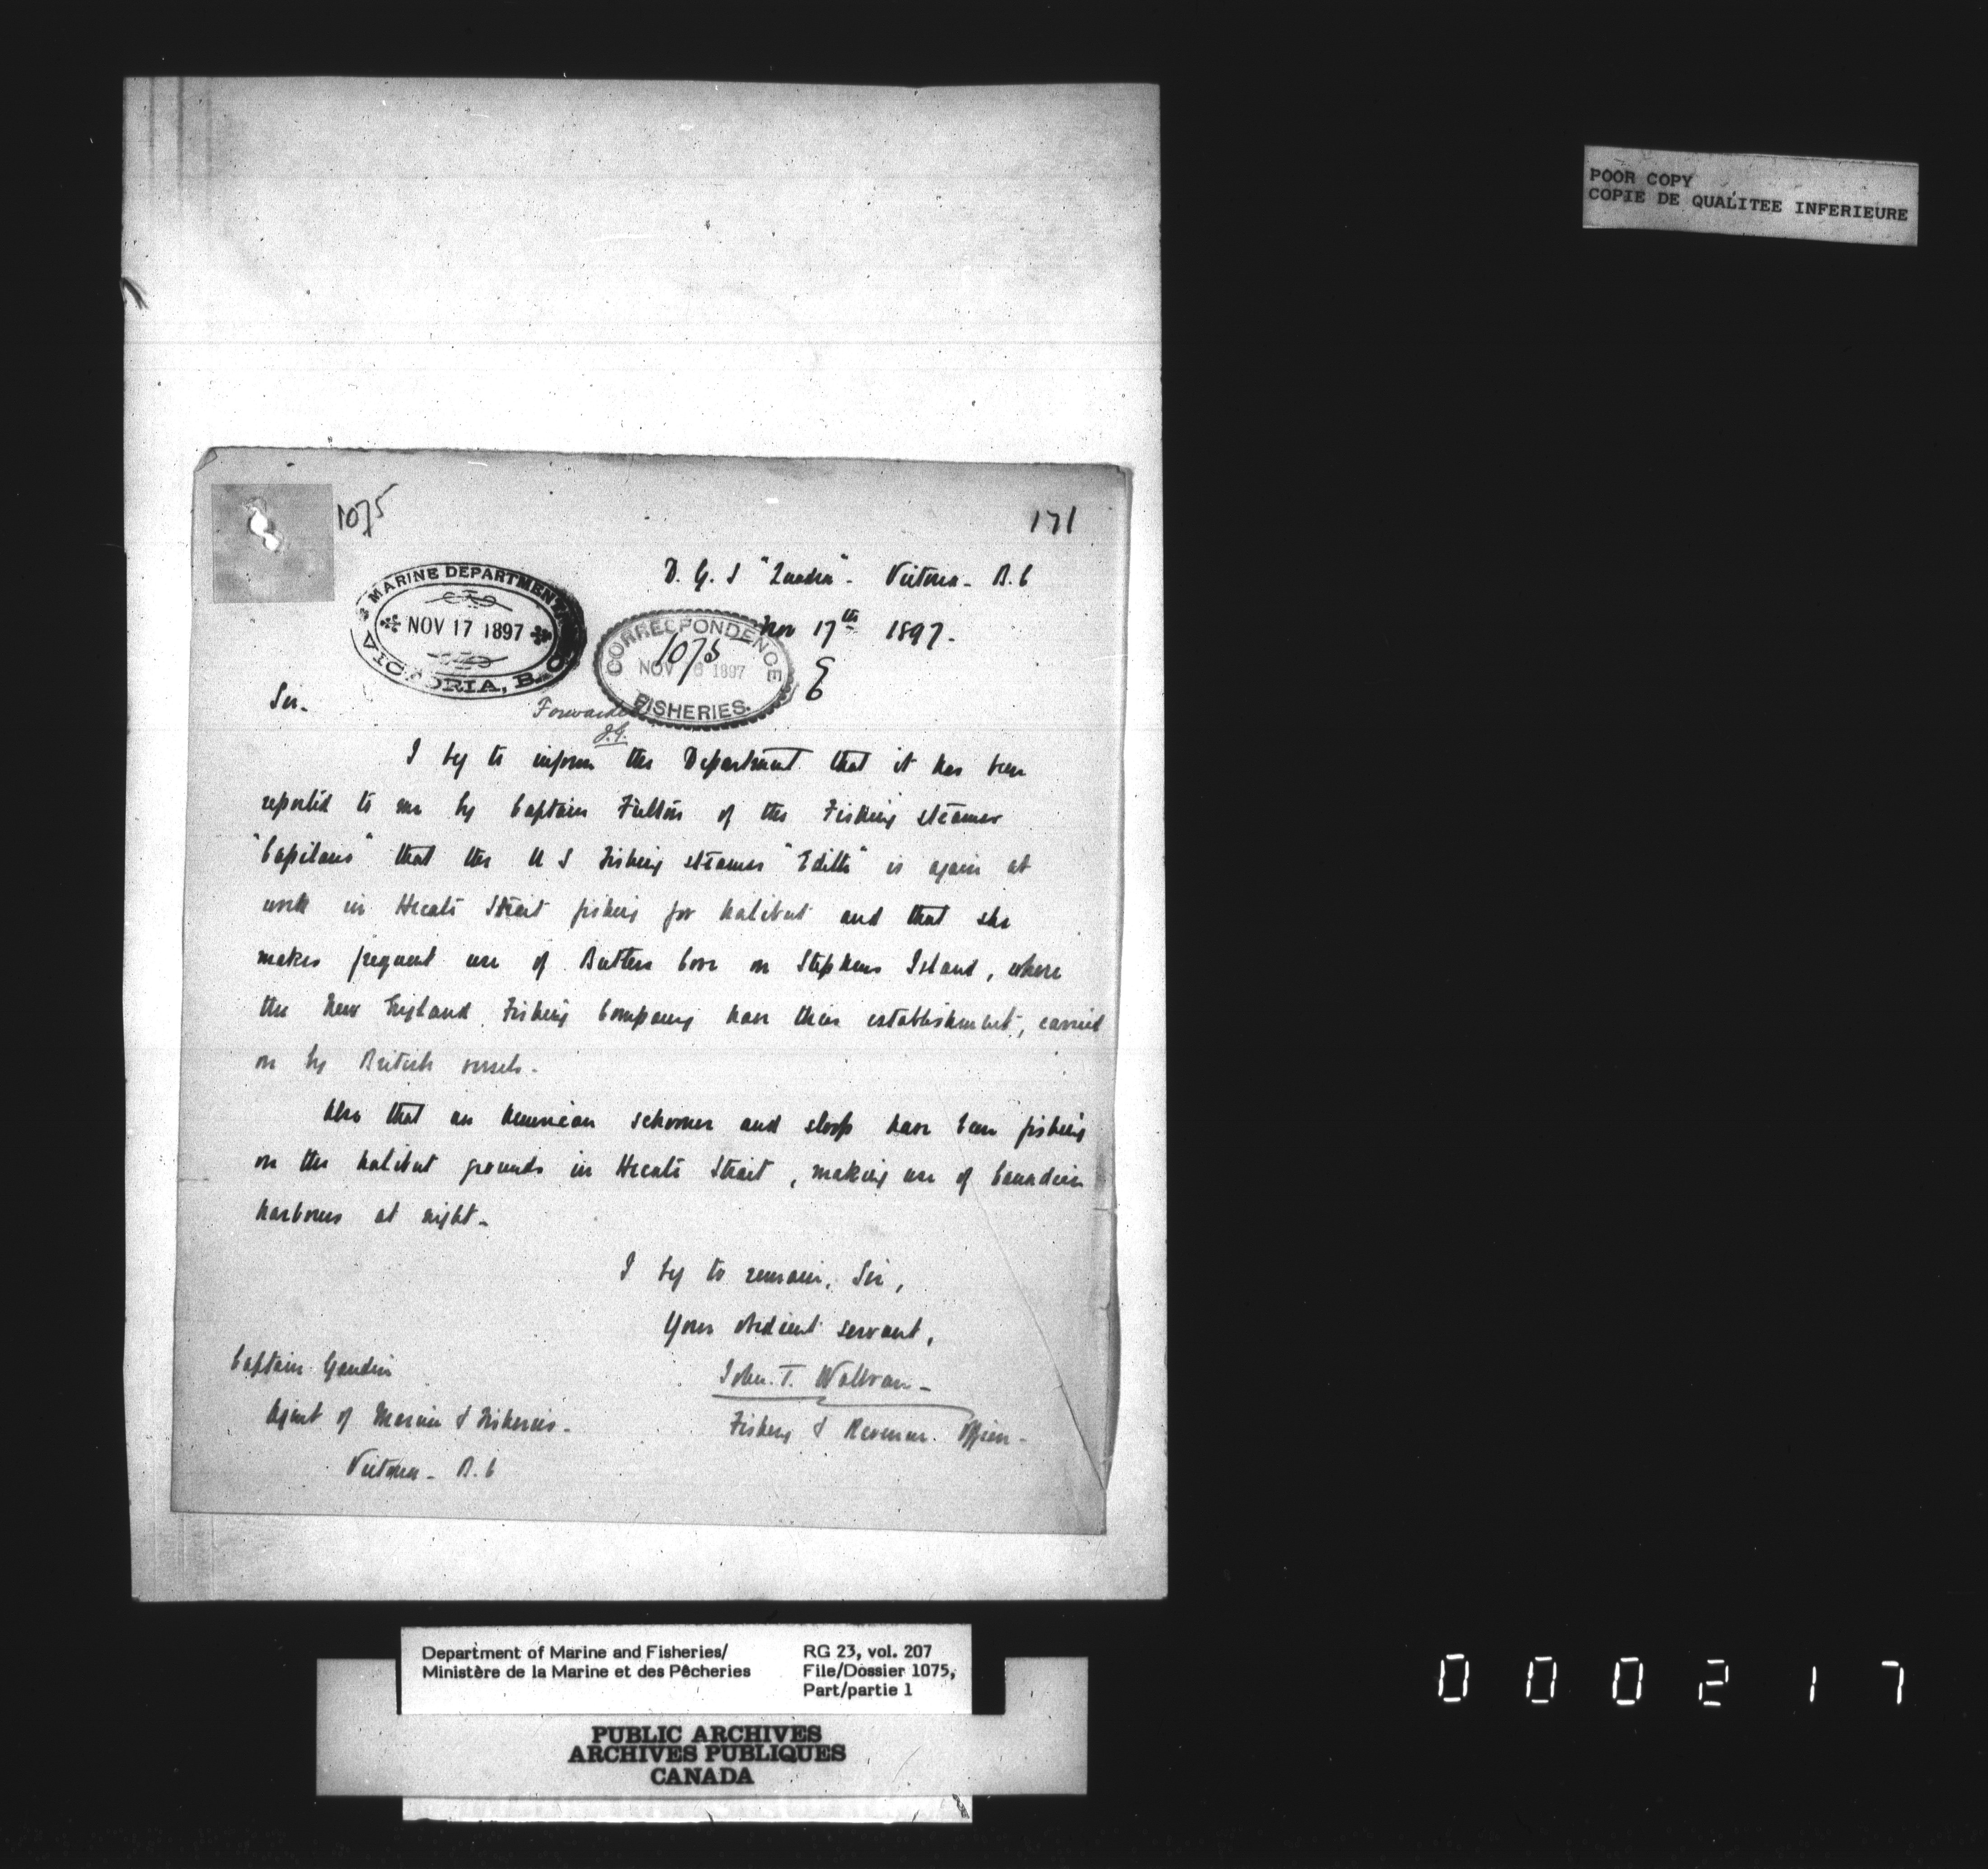 POOR COPY
COPIE DE QUALITEE INFERIEURE
1075
171
D. G. S "Quadra" - Victoria - B.C
Nov 17th 1897-
MARINE DEPARTMENT
NOV 17 1897
VICTORIA, B.C.
CORRESPONDENCE
1075
NOV 1897
FISHERIES.
Sir-
Forwarded
J.G.
I beg to inform the Department that it has been
reported to me by Captain Fulton of the Fishing steamer
"Capilano" that the U S Fishing steamer "Edith" is again at
work in Hecate Strait fishing for halibut and that she
makes frequent use of Butlers Cove on Stephens Island, where
the New England Fishing Company have their establishment, carried
on by British vessels-
Also that an American schooner and sloop have been fishing
on the halibut grounds in Hecate Strait, making use of Canadian
harbours at night-
I beg to remain, Sir,
Your obedient servant,
John. T. Walbran-
Fishery & Revenue Officer-
Captain Gaudin
Agent of Marine & Fisheries-
Victoria- B.C
Department of Marine and Fisheries/
Ministère de la Marine et des Pêcheries
RG 23, vol. 207
File/Dossier 1075,
Part/partie 1
PUBLIC ARCHIVES
ARCHIVES PUBLIQUES
CANADA
000217